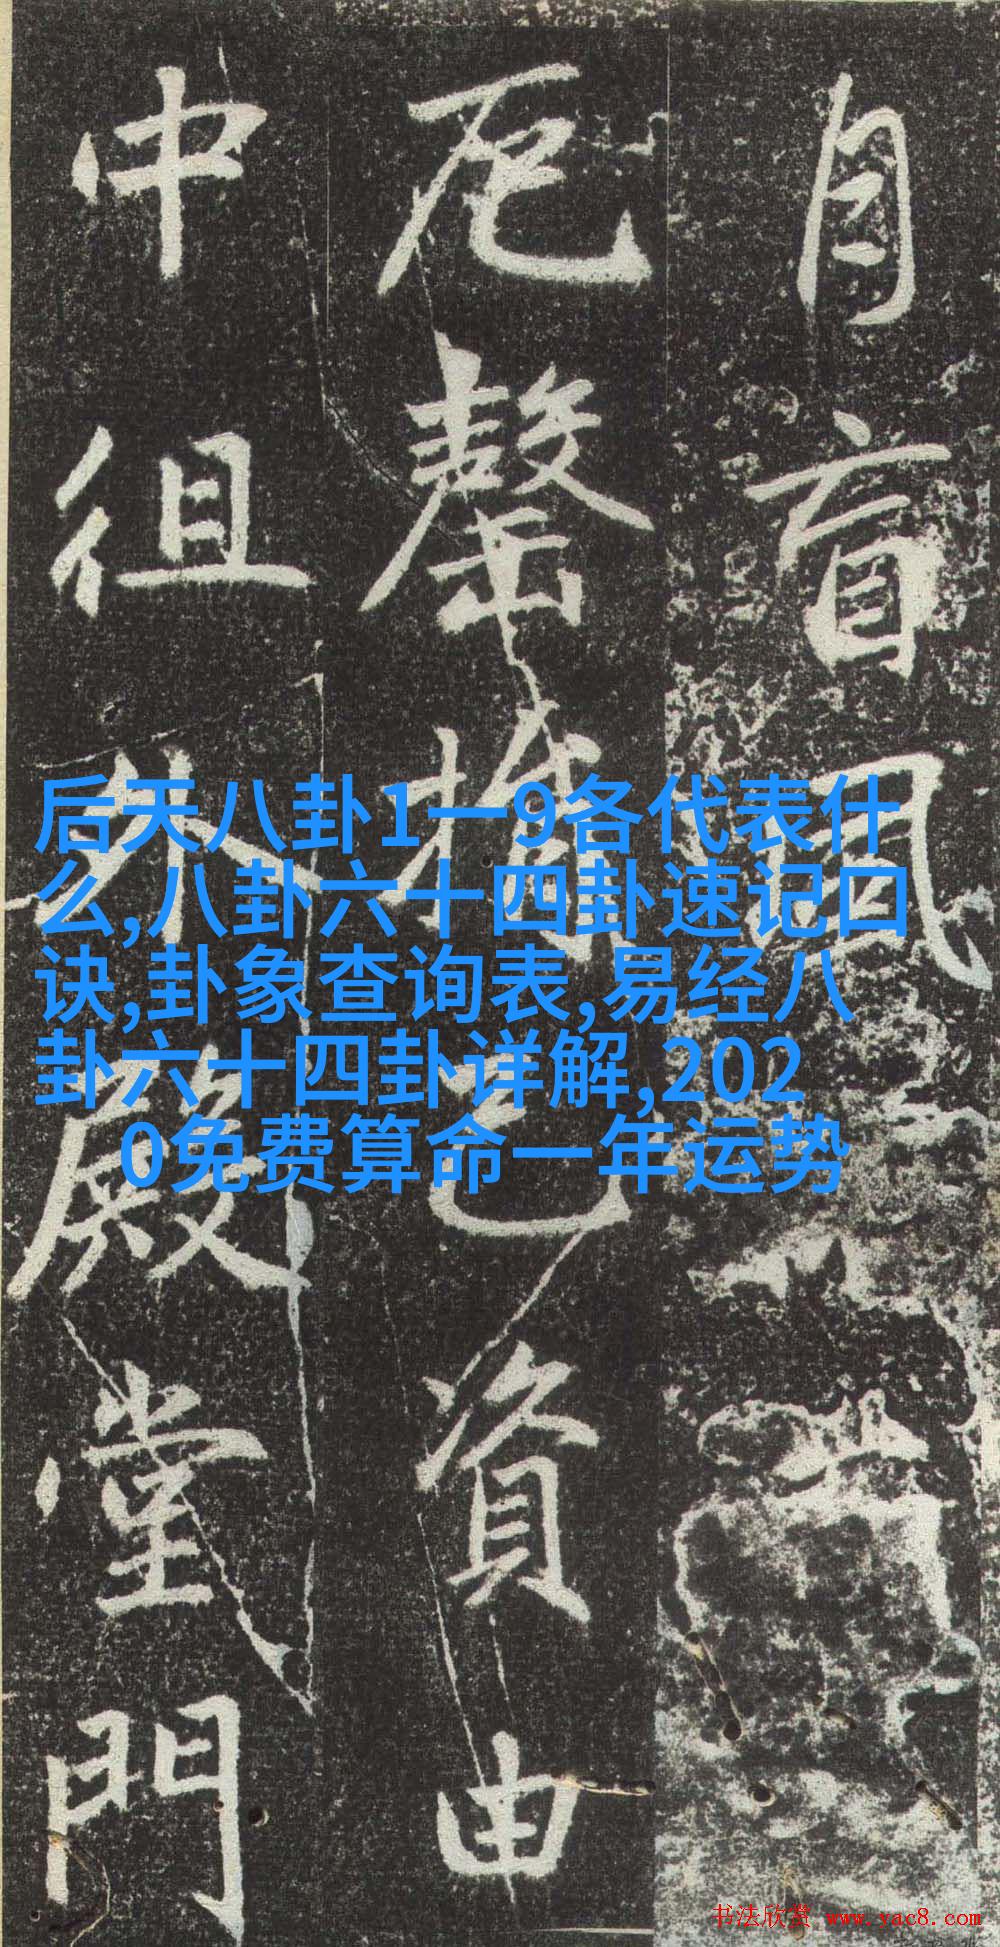 自盲風
厄罄
已資由
中徂外殿堂門
后天八卦1一9各代表什
么,八卦六十四卦速记口
诀,卦象查询表,易经八
卦六十四卦详解,202
0免费算命一年运势
书法欣赏 www.yac8.com